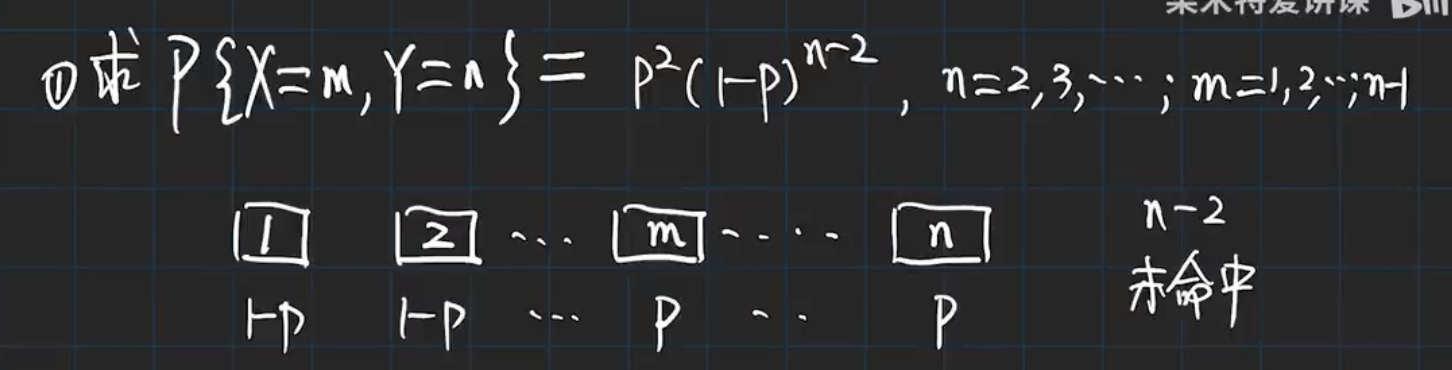 某木得爱讲课
①求 P{X=m,Y=n}= p²(1-p)ⁿ⁻² , n=2,3,…; m=1,2,…,n-1
1 2 … m …. n n-2
1-p 1-p … p .. p 未命中